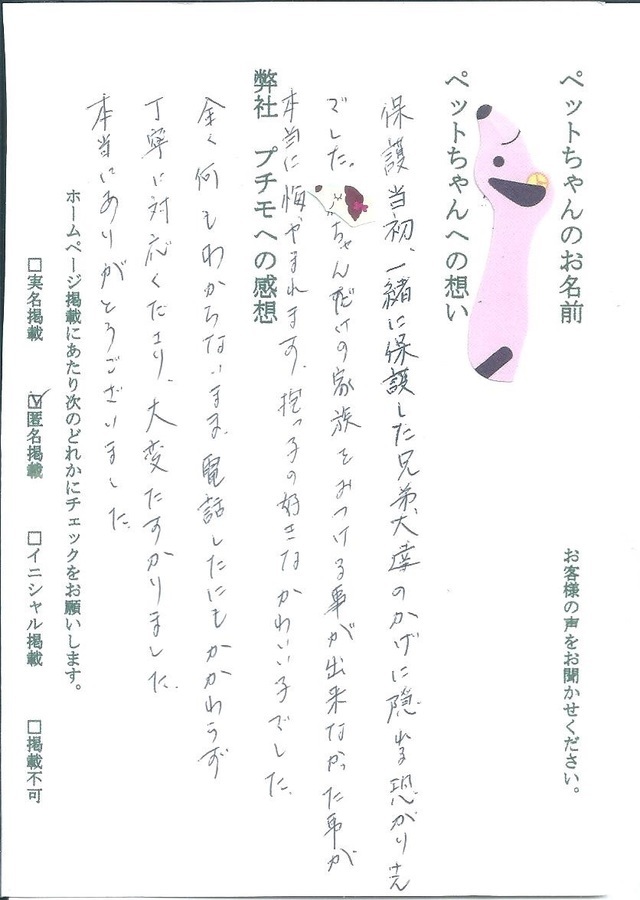 ペットちゃんのお名前
お客様の声をお聞かせください。
ペットちゃんへの想い
保護当初、一緒に保護した兄弟犬達のかげに隠れる恐がりさん
でした。ちゃんだけの家族をみつける事が出来なかった事が
本当に悔やまれます。抱っ子の好きなかわいい子でした。
弊社 プチモへの感想
全く何もわからないまま、電話したにもかかわらず
丁寧に対応くださり、大変たすかりました。
本当にありがとうございました。
ホームページ掲載にあたり次のどれかにチェックをお願いします。
□実名掲載 ☑匿名掲載 □イニシャル掲載 □掲載不可